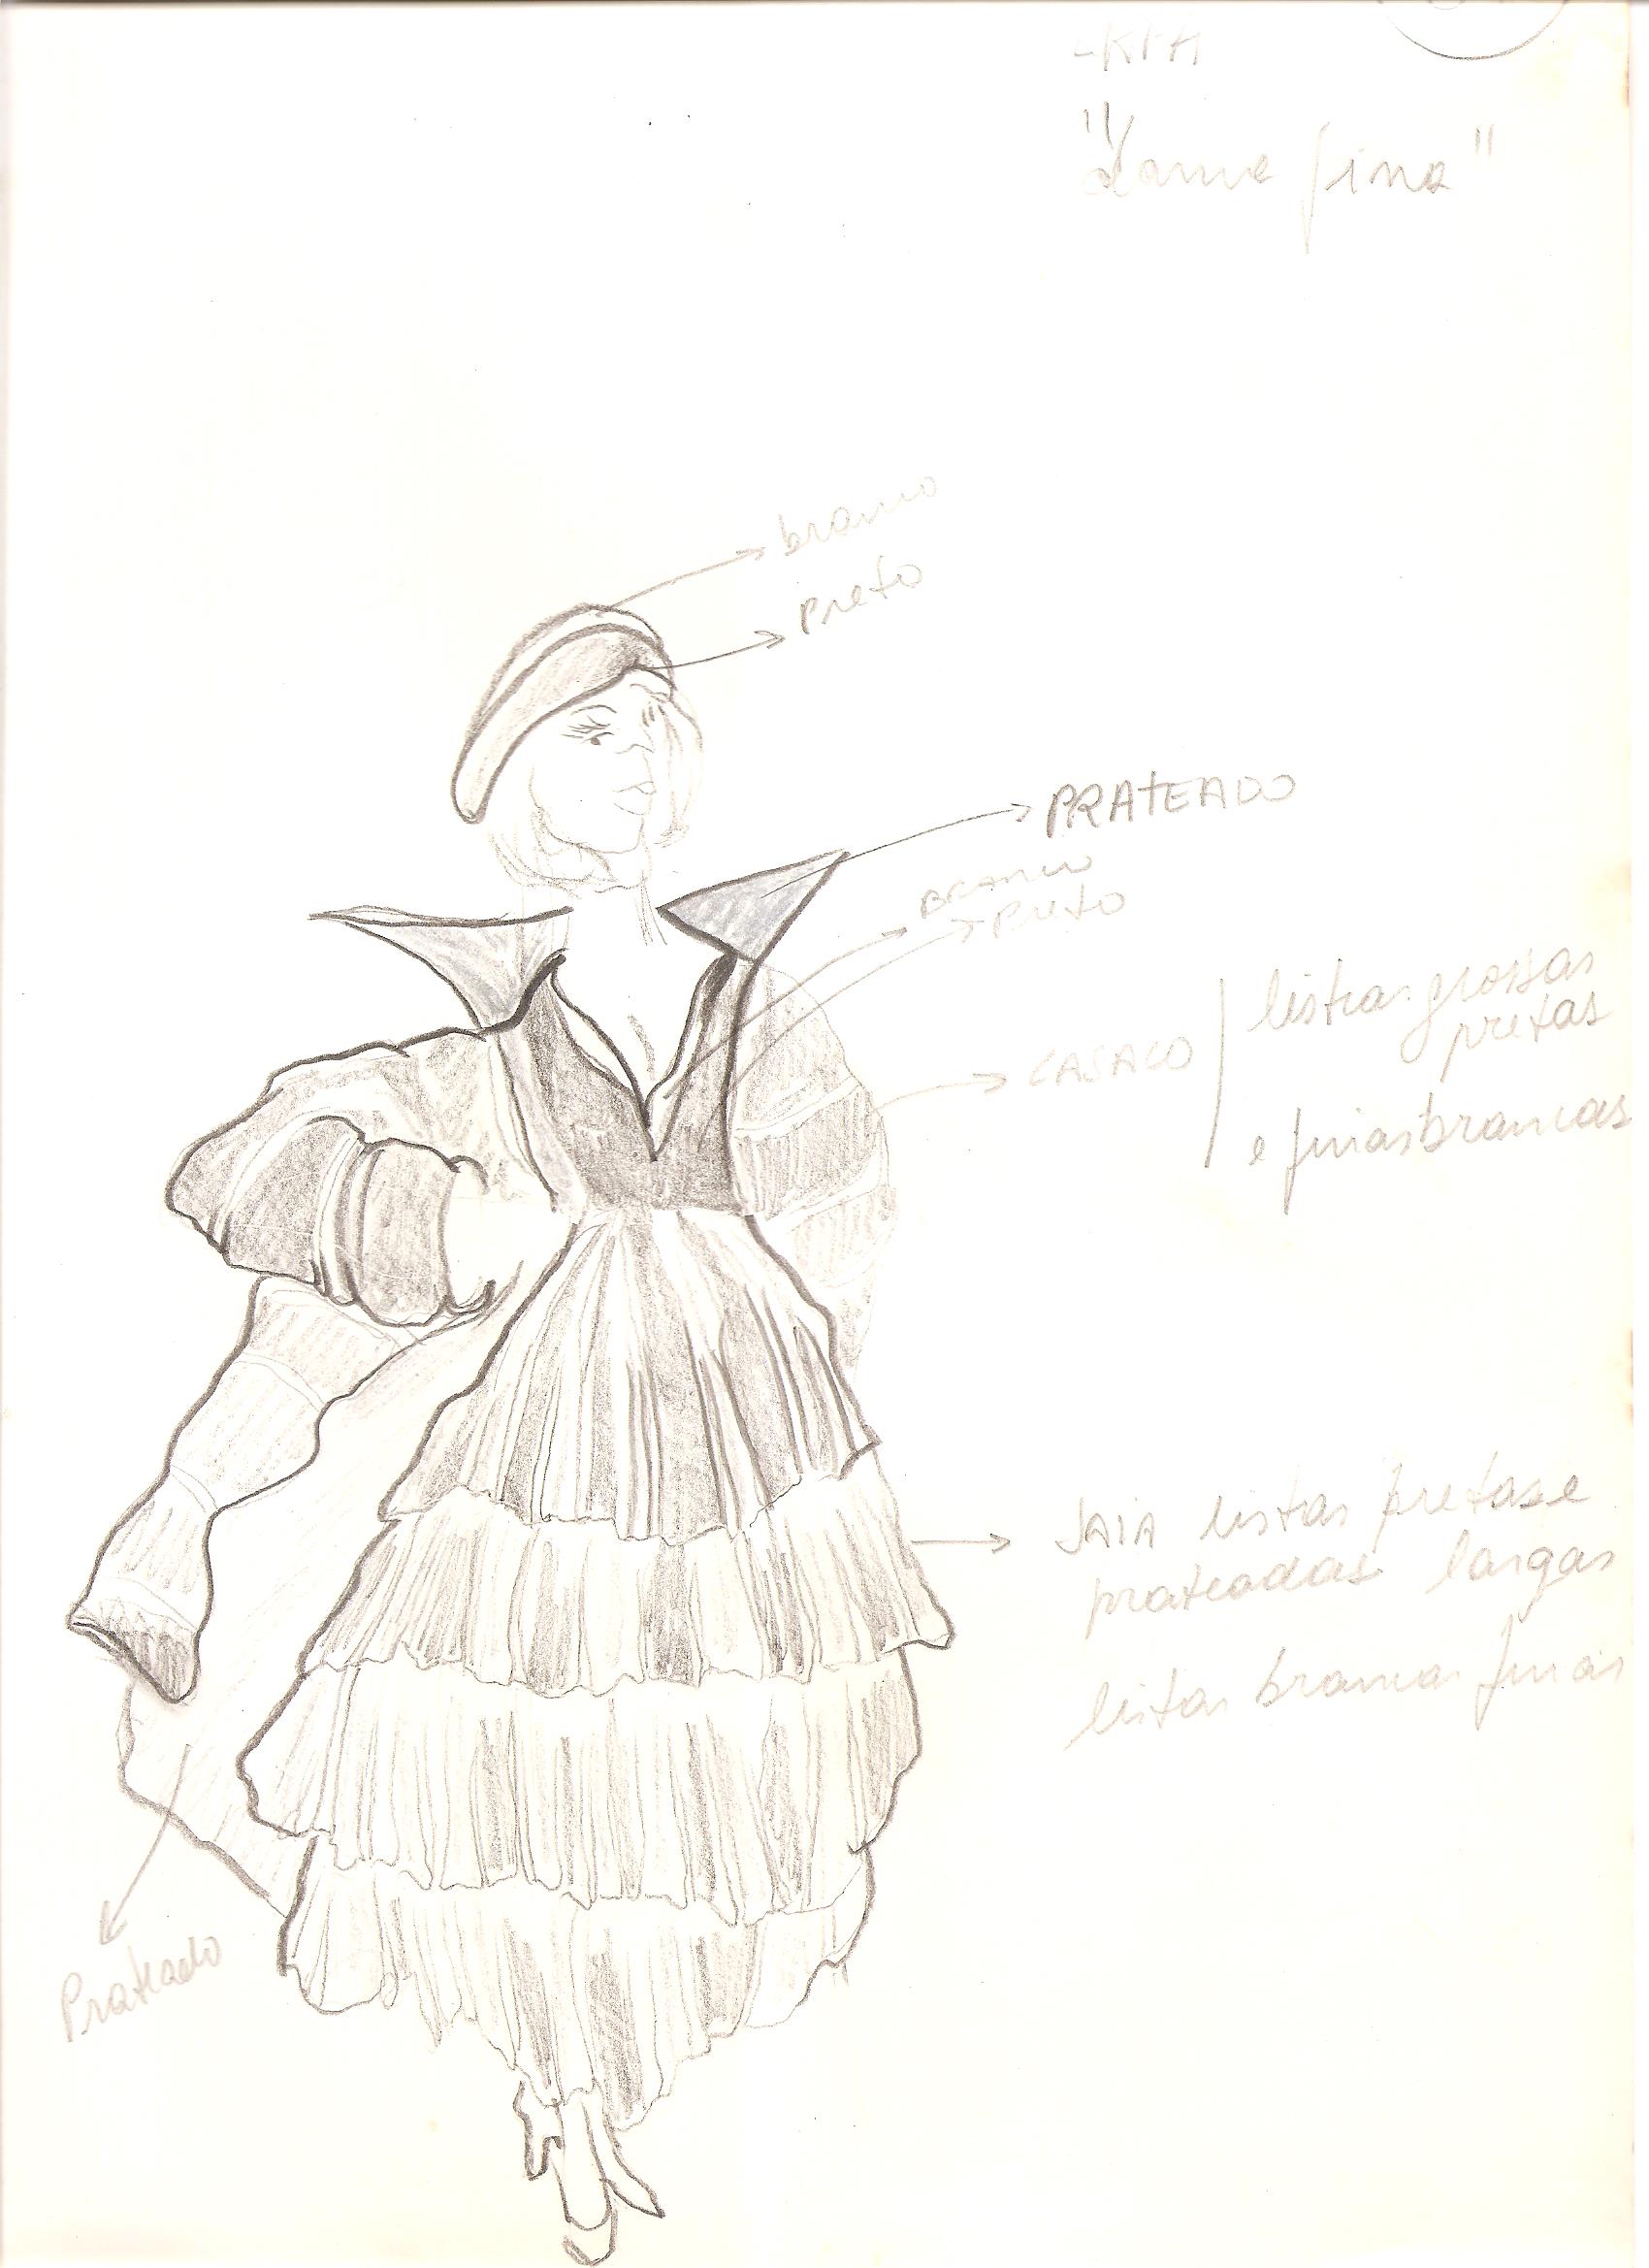 "Lame fina"
branco
preto
PRATEADO
BRANCO
preto
CASACO
listras grossas
pretas
e finas brancas
SAIA listas pretas e
prateadas largas
listas brancas finas
Prateado